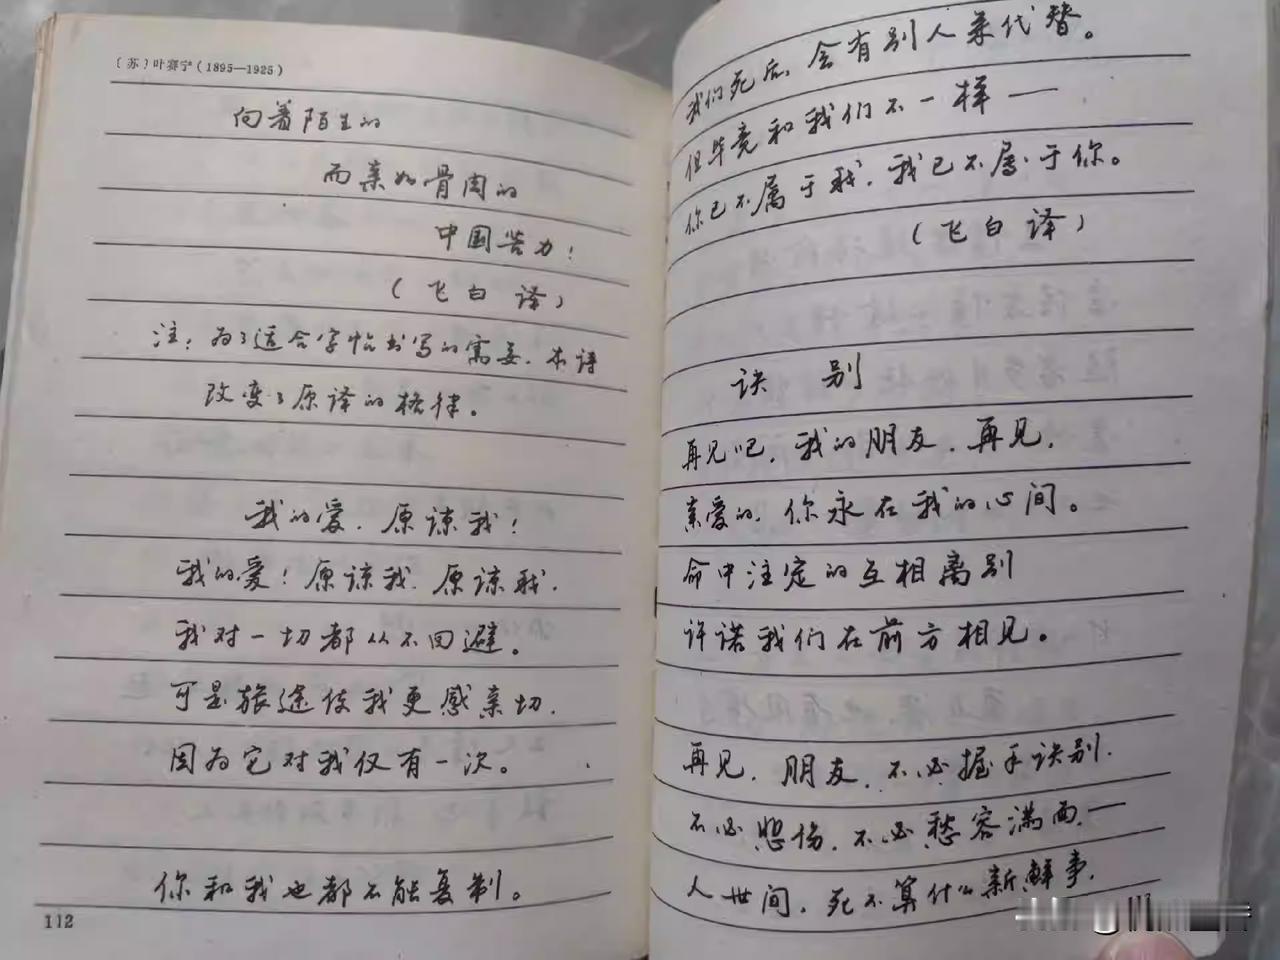 〔苏〕叶赛宁（1895—1925）
向着陌生的
而亲如骨肉的
中国苦力！
（飞白 译）
注：为了适合字帖书写的需要，本诗
改变了原译的格律。
我的爱，原谅我！
我的爱！原谅我，原谅我，
我对一切都从不回避。
可是旅途使我更感亲切，
因为它对我仅有一次。
你和我也都不能复制。
112
我们死后，会有别人来代替。
但毕竟和我们不一样——
你已不属于我，我已不属于你。
（飞白 译）
诀别
再见吧，我的朋友，再见，
亲爱的，你永在我的心间。
命中注定的互相离别
许诺我们在前方相见。
再见，朋友，不必握手诀别，
不必悲伤，不必愁容满面，——
人世间，死不算什么新鲜事，